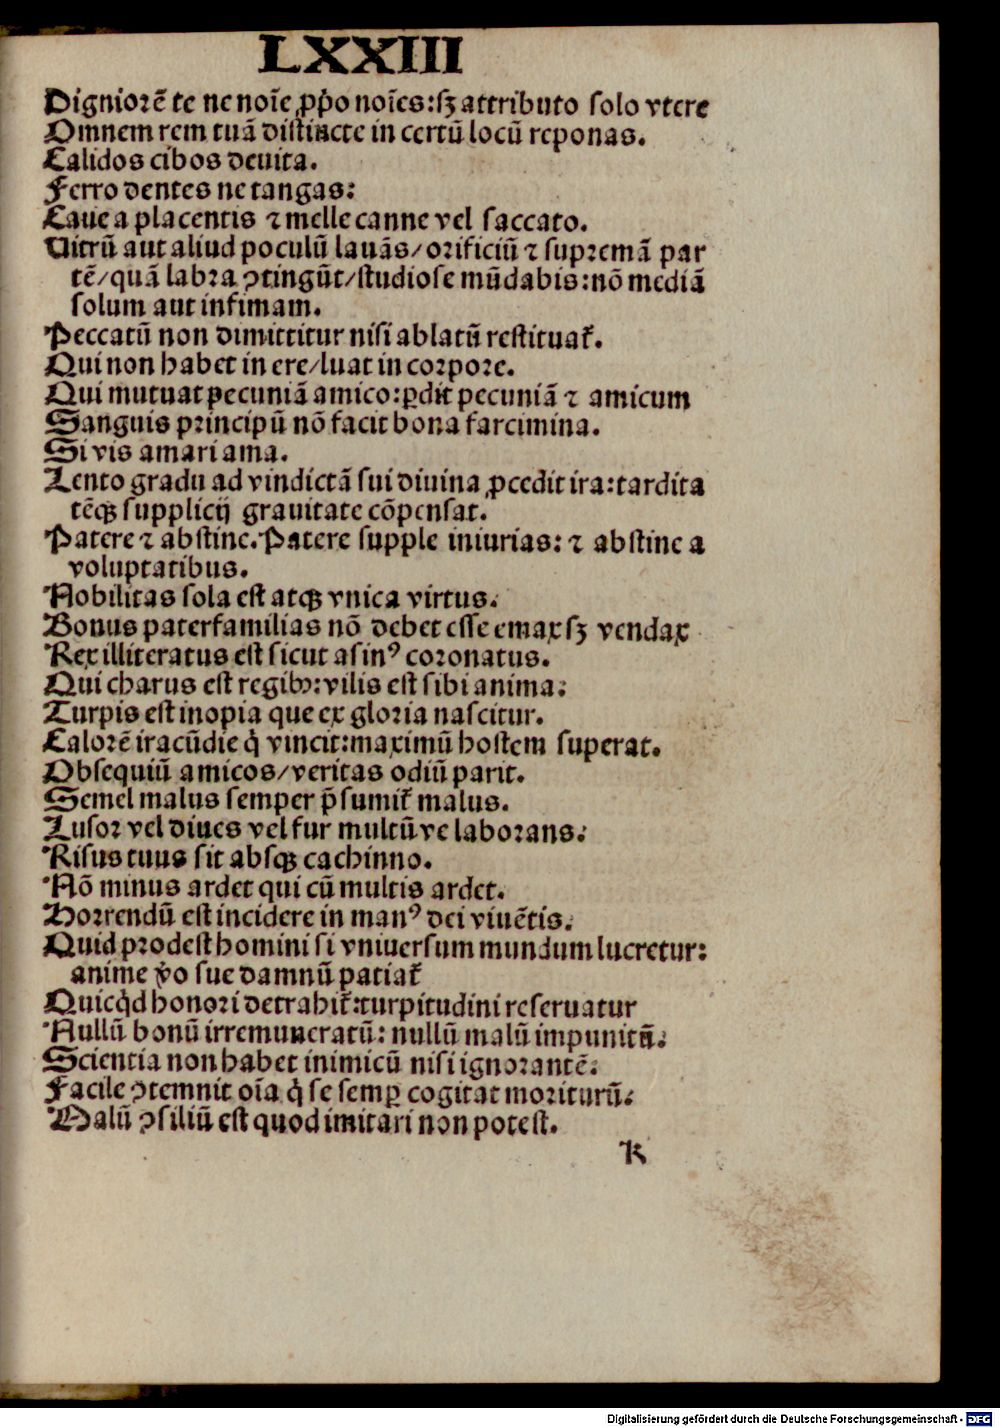 LXXIII
Digniorē te ne noīe ꝓpo noīes:sꝫ attributo solo vtere
Omnem rem tuā distincte in certū locū reponas.
Calidos cibos deuita.
Ferro dentes ne tangas:
Caue a placentis ⁊ melle canne vel saccato.
Uitrū aut aliud poculū lauās/orificiū ⁊ supremā par
tē/quā labra ꝯtingūt/studiose mūdabis:nō mediā
solum aut infimam.
Peccatū non dimittitur nisi ablatū restituať.
Qui non habet in ere/luat in corpore.
Qui mutuat pecuniā amico:ꝑdit pecuniā ⁊ amicum
Sanguis principū nō facit bona farcimina.
Si vis amari ama.
Lento gradu ad vindictā sui diuina ꝓcedit ira:tardita
tēqꝫ supplicij grauitate cōpensat.
Patere ⁊ abstine.Patere supple iniurias: ⁊ abstine a
voluptatibus.
Nobilitas sola est atqꝫ vnica virtus.
Bonus paterfamilias nō debet esse emax sꝫ vendax
Rex illiteratus est sicut asinꝰ coronatus.
Qui charus est regibꝫ:vilis est sibi anima.
Turpis est inopia que ex gloria nascitur.
Calorē iracūdie q̇ vincit:maximū hostem superat.
Obsequiū amicos/veritas odiū parit.
Semel malus semper p̄sumiť malus.
Lusor vel diues vel fur multū ve laborans.
Risus tuus sit absqꝫ cachinno.
Nō minus ardet qui cū multis ardet.
Horrendū est incidere in manꝰ dei viuētis.
Quid prodest homini si vniuersum mundum lucretur:
anime v̊o sue damnū patiať
Quicq̇d honori detrahiť:turpitudini reseruatur
Nullū bonū irremuneratū: nullū malū impunitū.
Scientia non habet inimicū nisi ignorantē.
Facile ꝯtemnit oīa q̇ se semꝑ cogitat moriturū.
Malū ꝯsiliū est quod imitari non potest.
K
Digitalisierung gefördert durch die Deutsche Forschungsgemeinschaft - DFG